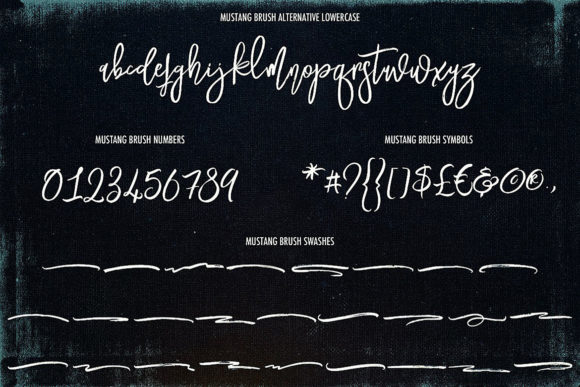 MUSTANG BRUSH ALTERNATIVE LOWERCASE
abcdefghijklmnopqrstuvwxyz
MUSTANG BRUSH NUMBERS
0123456789
MUSTANG BRUSH SYMBOLS
*#?{}[]$£€&©®.,
MUSTANG BRUSH SWASHES